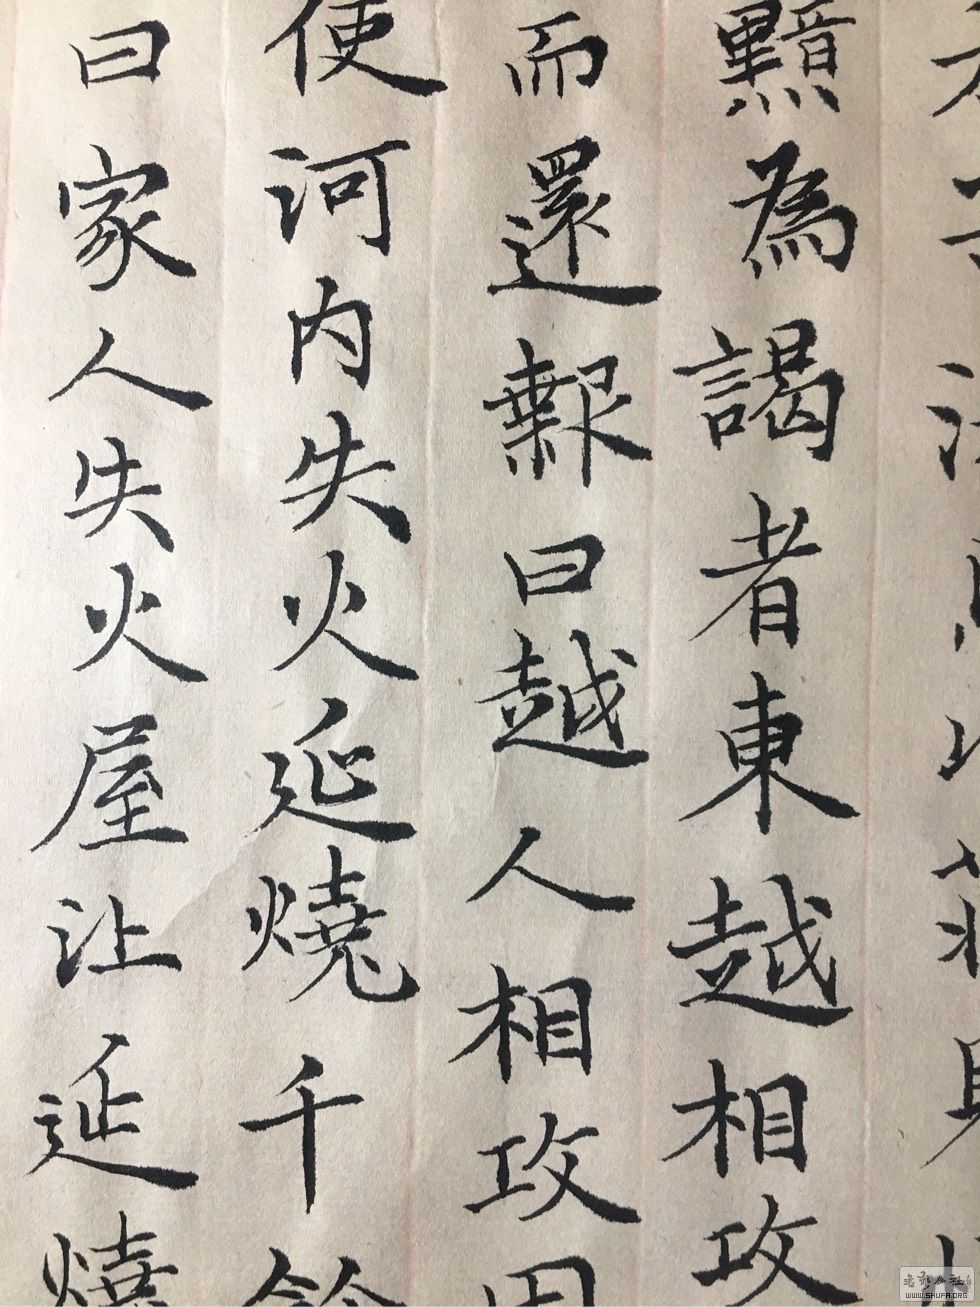 黯為謁者東越相攻
而還報曰越人相攻
使河内失火延燒千
曰家人失火屋比延燒